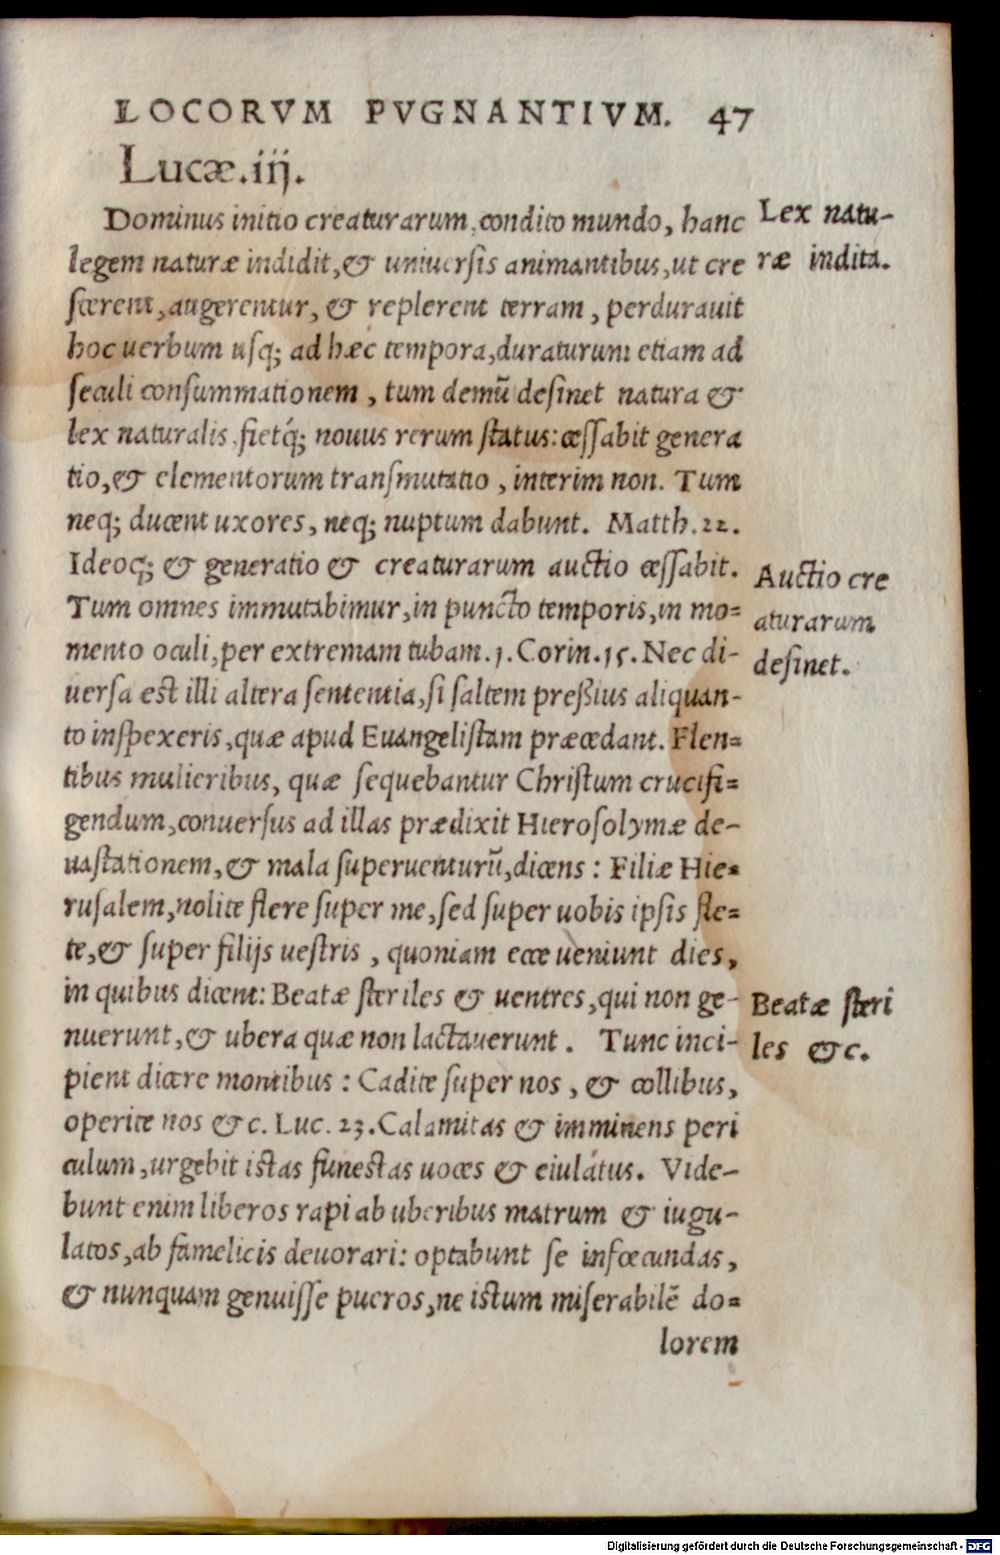 LOCORVM PVGNANTIVM. 47
Lucæ.iij.
Dominus initio creaturarum, condito mundo, hanc
legem naturæ indidit, & uniuersis animantibus, ut cre
scerent, augerentur, & replerent terram, perdurauit
hoc uerbum usq; ad hæc tempora, duraturum etiam ad
seculi consummationem, tum demũ desinet natura &
lex naturalis, fietq́; nouus rerum status: cessabit genera
tio, & elementorum transmutatio, interim non. Tum
neq; ducent uxores, neq; nuptum dabunt. Matth.22.
Ideoq; & generatio & creaturarum auctio cessabit.
Tum omnes immutabimur, in puncto temporis, in mo=
mento oculi, per extremam tubam.1.Corin.15. Nec di-
uersa est illi altera sententia, si saltem preßius aliquan-
to inspexeris, quæ apud Euangelistam præcedant. Flen=
tibus mulieribus, quæ sequebantur Christum crucifi=
gendum, conuersus ad illas prædixit Hierosolymæ de-
uastationem, & mala superuenturũ, dicens: Filiæ Hie=
rusalem, nolite flere super me, sed super uobis ipsis fle=
te, & super filijs uestris, quoniam ecce ueniunt dies,
in quibus dicent: Beatæ steriles & uentres, qui non ge-
nuerunt, & ubera quæ non lactauerunt. Tunc inci-
pient dicere montibus: Cadite super nos, & collibus,
operite nos &c. Luc. 23. Calamitas & imminens peri
culum, urgebit istas funestas uoces & eiulátus. Vide-
bunt enim liberos rapi ab uberibus matrum & iugu-
latos, ab famelicis deuorari: optabunt se infœcundas,
& nunquam genuisse pueros, ne istum miserabilẽ do=
lorem
Lex natu-
ræ indita.
Auctio cre
aturarum
desinet.
Beatæ steri
les &c.
Digitalisierung gefördert durch die Deutsche Forschungsgemeinschaft - DFG